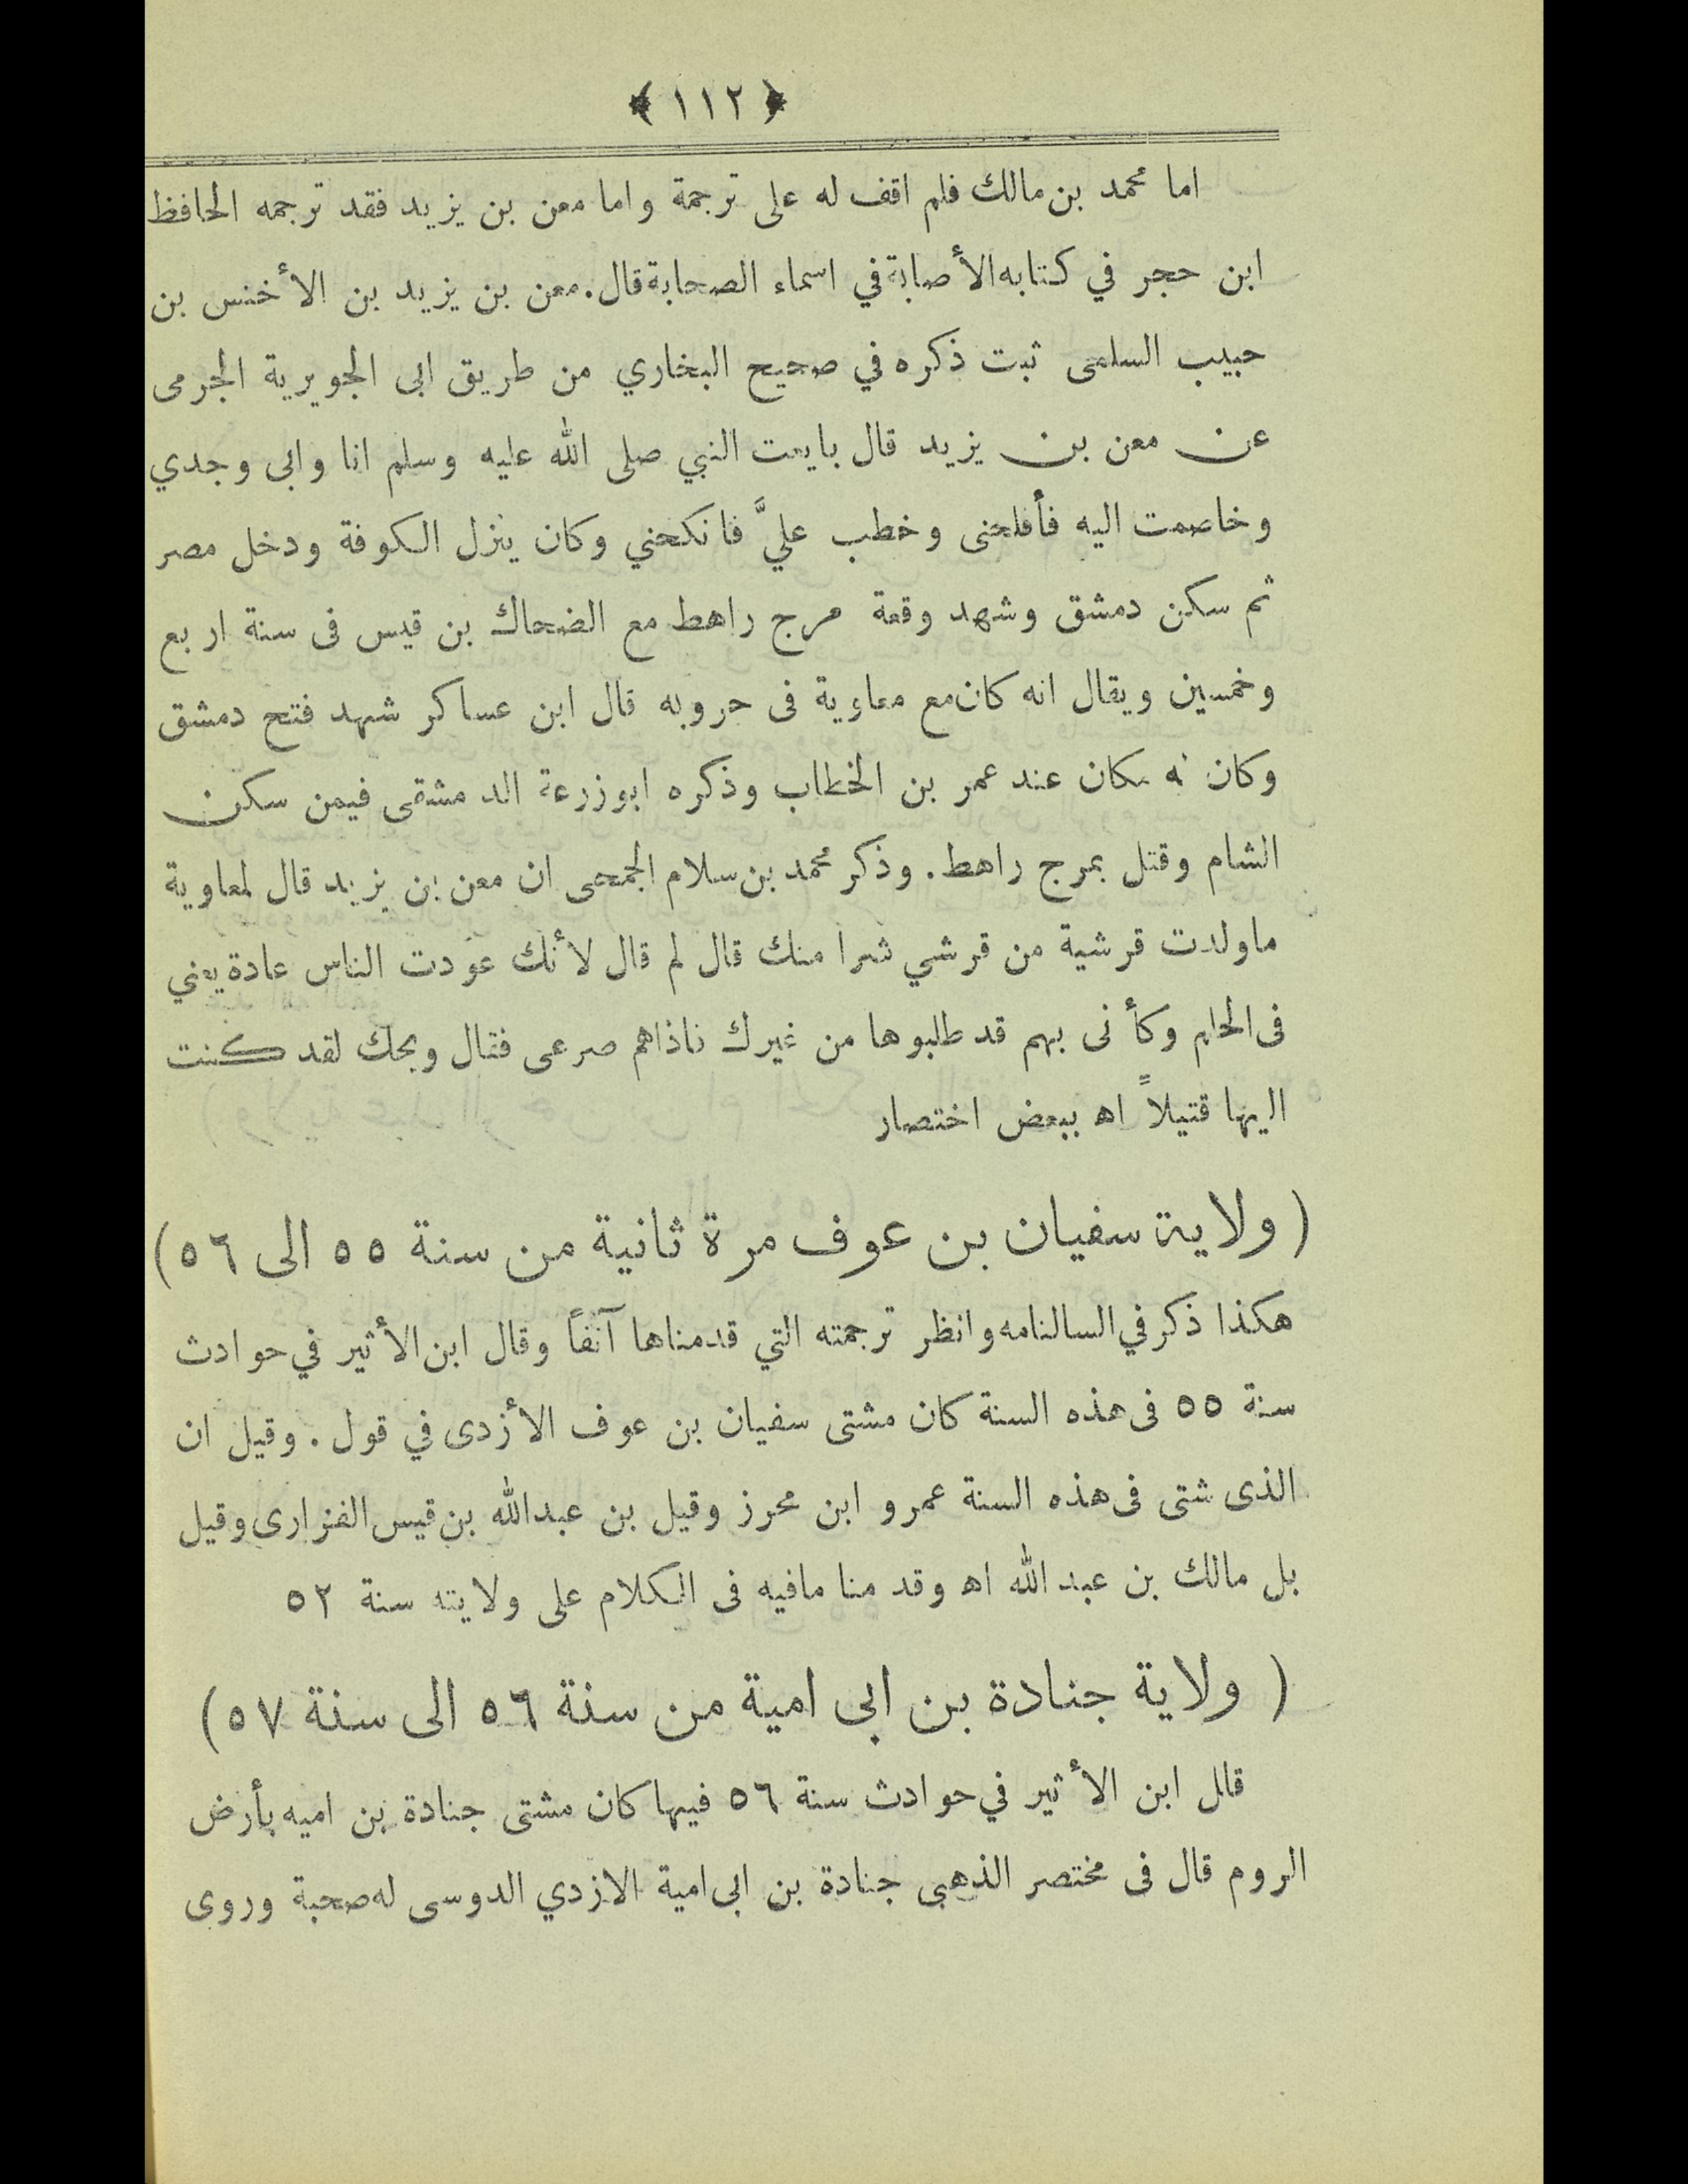 ﴿ ١١٢ ﴾
اما محمد بن مالك فلم اقف له على ترجمة واما معن بن يزيد فقد ترجمه الحافظ
ابن حجر في كتابه الأصابة في اسماء الصحابة قال. معن بن يزيد بن الأخنس بن
حبيب السلمى ثبت ذكره في صحيح البخاري من طريق ابى الجويرية الجرمى
عن معن بن يزيد قال بايعت النبي صلى الله عليه وسلم انا وابى وجدي
وخاصمت اليه فأفلحنى وخطب عليَّ فانكحني وكان ينزل الكوفة ودخل مصر
ثم سكن دمشق وشهد وقعة مرج راهط مع الضحاك بن قيس فى سنة اربع
وخمسين ويقال انه كان مع معاوية فى حروبه قال ابن عساكر شهد فتح دمشق
وكان له مكان عند عمر بن الخطاب وذكره ابوزرعة الدمشقى فيمن سكن
الشام وقتل بمرج راهط. وذكر محمد بن سلام الجمحى ان معن بن يزيد قال لمعاوية
ماولدت قرشية من قرشي شرا منك قال لم قال لأنك عودت الناس عادة يعني
فى الحلم وكأنى بهم قد طلبوها من غيرك فاذاهم صرعى فقال ويحك لقد كنت
اليها قتيلاً اه ببعض اختصار
( ولاية سفيان بن عوف مرة ثانية من سنة ٥٥ الى ٥٦ )
هكذا ذكر في السالنامه وانظر ترجمته التي قدمناها آنفاً وقال ابن الأثير في حوادث
سنة ٥٥ فى هذه السنة كان مشتى سفيان بن عوف الأزدى في قول. وقيل ان
الذى شتى فى هذه السنة عمرو ابن محرز وقيل بن عبدالله بن قيس الفزارى وقيل
بل مالك بن عبد الله اه وقدمنا مافيه فى الكلام على ولايته سنة ٥٢
( ولاية جنادة بن ابى امية من سنة ٥٦ الى سنة ٥٧ )
قال ابن الأثير في حوادث سنة ٥٦ فيها كان مشتى جنادة بن اميه بأرض
الروم قال فى مختصر الذهبى جنادة بن ابى امية الازدي الدوسى له صحبة وروى